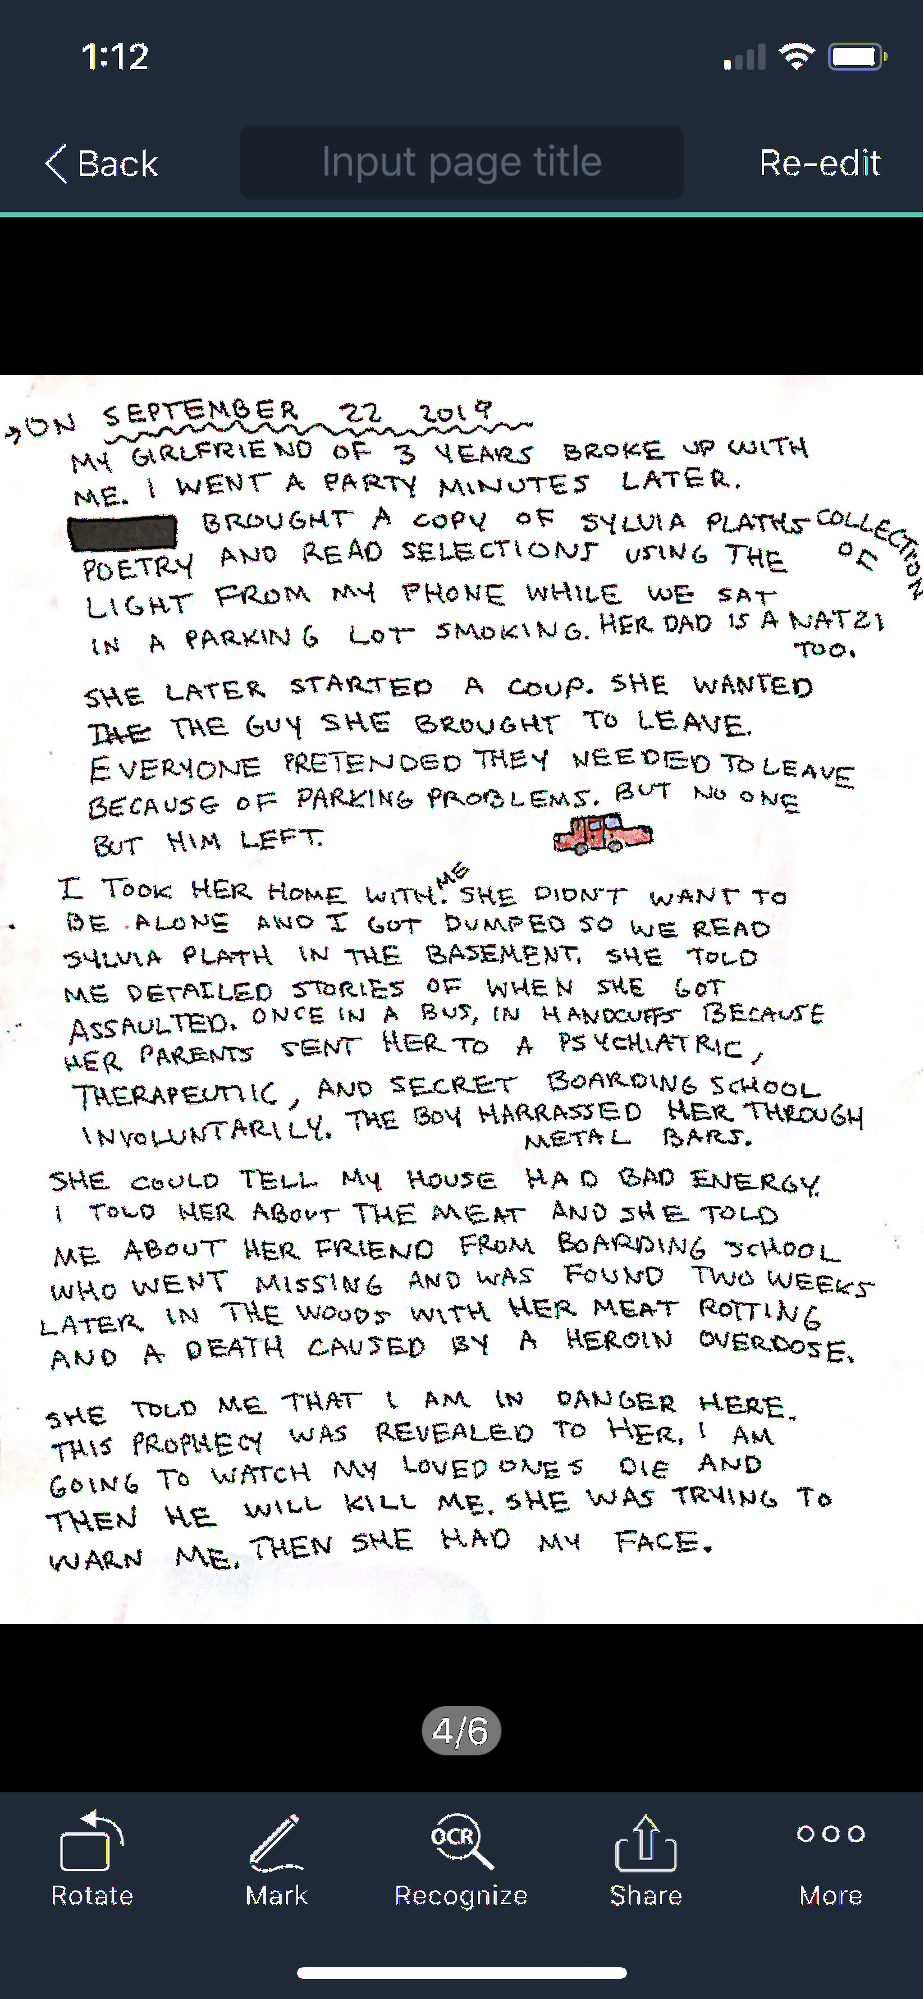 1:12
Back
Input page title
Re-edit
→ON SEPTEMBER 22 2019
MY GIRLFRIEND OF 3 YEARS BROKE UP WITH
ME. I WENT A PARTY MINUTES LATER.
BROUGHT A COPY OF SYLVIA PLATHS COLLECTION OF
POETRY AND READ SELECTIONS USING THE
LIGHT FROM MY PHONE WHILE WE SAT
IN A PARKING LOT SMOKING. HER DAD IS A NATZI
TOO.
SHE LATER STARTED A COUP. SHE WANTED
THE THE GUY SHE BROUGHT TO LEAVE.
EVERYONE PRETENDED THEY NEEDED TO LEAVE
BECAUSE OF PARKING PROBLEMS. BUT NO ONE
BUT HIM LEFT.
I TOOK HER HOME WITH ME. SHE DIDN'T WANT TO
BE ALONE AND I GOT DUMPED SO WE READ
SYLVIA PLATH IN THE BASEMENT. SHE TOLD
ME DETAILED STORIES OF WHEN SHE GOT
ASSAULTED. ONCE IN A BUS, IN HANDCUFFS BECAUSE
HER PARENTS SENT HER TO A PSYCHIATRIC,
THERAPEUTIIC, AND SECRET BOARDING SCHOOL
INVOLUNTARILY. THE BOY HARRASSED HER THROUGH
METAL BARS.
SHE COULD TELL MY HOUSE HAD BAD ENERGY.
I TOLD HER ABOUT THE MEAT AND SHE TOLD
ME ABOUT HER FRIEND FROM BOARDING SCHOOL
WHO WENT MISSING AND WAS FOUND TWO WEEKS
LATER IN THE WOODS WITH HER MEAT ROTTING
AND A DEATH CAUSED BY A HEROIN OVERDOSE.
SHE TOLD ME THAT I AM IN DANGER HERE.
THIS PROPHECY WAS REVEALED TO HER. I AM
GOING TO WATCH MY LOVED ONES DIE AND
THEN HE WILL KILL ME. SHE WAS TRYING TO
WARN ME. THEN SHE HAD MY FACE.
4/6
OCR
Rotate
Mark
Recognize
Share
More